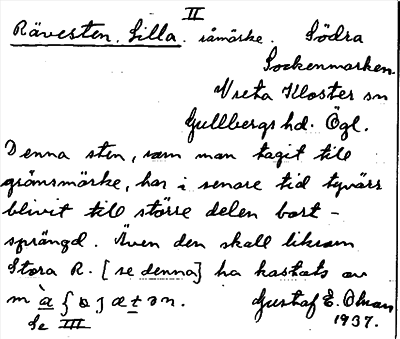 II
Rävesten. Lilla. råmärke. Södra
Sockenmarken.
Vreta Kloster sn
Gullbergs hd. Ögl.
Denna sten, som man tagit till
gränsmärke, har i senare tid tyvärr
blivit till större delen bort-
sprängd. Även den skall liksom
Stora R. [se denna] ha kastats av
Gustaf E. Olman
Se III 1937.